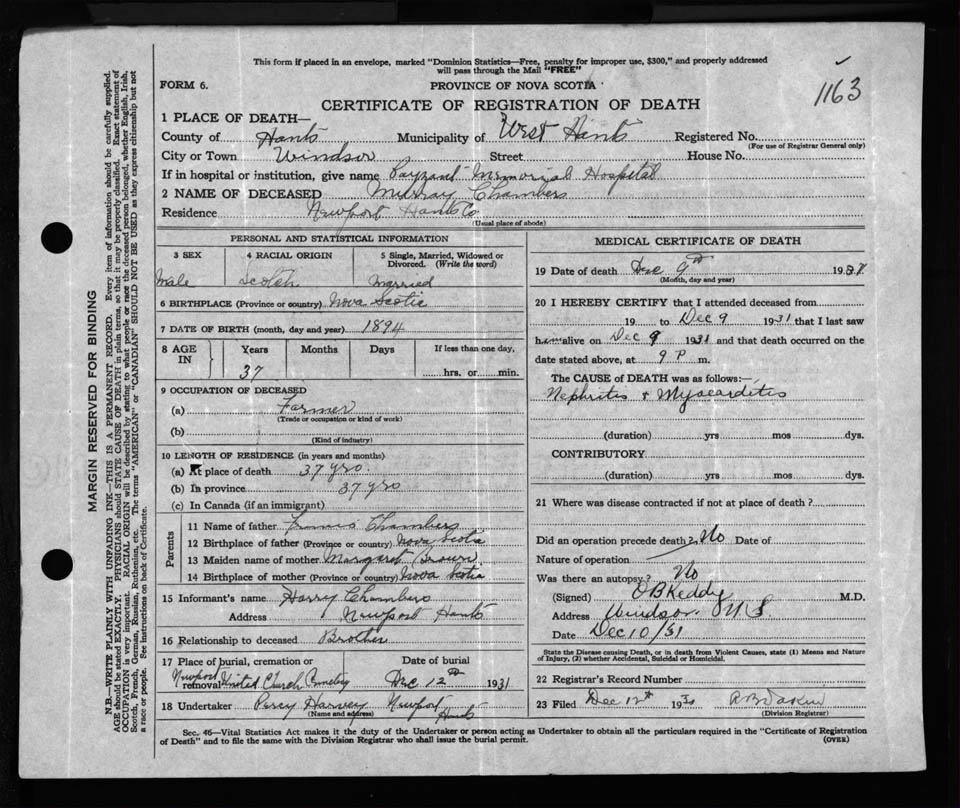 This form if placed in an envelope, marked "Dominion Statistics—Free, penalty for improper use, $300," and properly addressed
will pass through the Mail "FREE"
FORM 6.
PROVINCE OF NOVA SCOTIA
1163
CERTIFICATE OF REGISTRATION OF DEATH
1 PLACE OF DEATH—
County of Hants Municipality of West Hants Registered No.
(For use of Registrar General only)
City or Town Windsor Street House No.
If in hospital or institution, give name Payzant Memorial Hospital
2 NAME OF DECEASED Murray Chambers
Residence Newport Hants Co
(Usual place of abode)
PERSONAL AND STATISTICAL INFORMATION
3 SEX 4 RACIAL ORIGIN 5 Single, Married, Widowed or
Divorced. (Write the word)
Male Scotch Married
6 BIRTHPLACE (Province or country) Nova Scotia
7 DATE OF BIRTH (month, day and year) 1894
8 AGE IN Years Months Days If less than one day,
37 hrs. or min.
9 OCCUPATION OF DECEASED
(a) Farmer
(Trade or occupation or kind of work)
(b)
(Kind of industry)
10 LENGTH OF RESIDENCE (in years and months)
(a) At place of death 37 yrs.
(b) In province 37 yrs
(c) In Canada (if an immigrant)
Parents
11 Name of father Chambers
12 Birthplace of father (Province or country) Nova Scotia
13 Maiden name of mother Margaret Brown
14 Birthplace of mother (Province or country) Nova Scotia
15 Informant's name Harry Chambers
Address Newport Hants
16 Relationship to deceased Brother
17 Place of burial, cremation or removal Newport United Church Cemetery
Date of burial Dec 12th 1931
18 Undertaker Percy Harvey Newport Hants
(Name and address)
MEDICAL CERTIFICATE OF DEATH
19 Date of death Dec 9th 1931
(Month, day and year)
20 I HEREBY CERTIFY that I attended deceased from
19 to Dec 9 1931 that I last saw
him alive on Dec 9 1931 and that death occurred on the
date stated above, at 9 P m.
The CAUSE OF DEATH was as follows:—
Nephritis & Myocarditis
(duration) yrs mos dys.
CONTRIBUTORY
(duration) yrs mos dys.
21 Where was disease contracted if not at place of death?
Did an operation precede death? No Date of
Nature of operation
Was there an autopsy? No
(Signed) O B Keddy M.D.
Address Windsor N S
Date Dec 10/31
State the Disease causing Death, or in death from Violent Causes, state (1) Means and Nature
of Injury, (2) whether Accidental, Suicidal or Homicidal.
22 Registrar's Record Number
23 Filed Dec 12th 1931
(Division Registrar)
Sec. 46—Vital Statistics Act makes it the duty of the Undertaker or person acting as Undertaker to obtain all the particulars required in the "Certificate of Registration
of Death" and to file the same with the Division Registrar who shall issue the burial permit. (OVER)
MARGIN RESERVED FOR BINDING
N.B.—WRITE PLAINLY WITH UNFADING INK—THIS IS A PERMANENT RECORD. Every item of information should be carefully supplied.
AGE should be stated EXACTLY. PHYSICIANS should STATE CAUSE OF DEATH in plain terms, so that it may be properly classified. Exact statement of
OCCUPATION is very important. RACIAL ORIGIN will be described by stating to what people or race the deceased person belonged, whether English, Irish,
Scotch, French, German, Russian, Ruthenian, etc. The terms "AMERICAN" or "CANADIAN" SHOULD NOT BE USED as they express citizenship but not
a race or people. See instructions on back of Certificate.